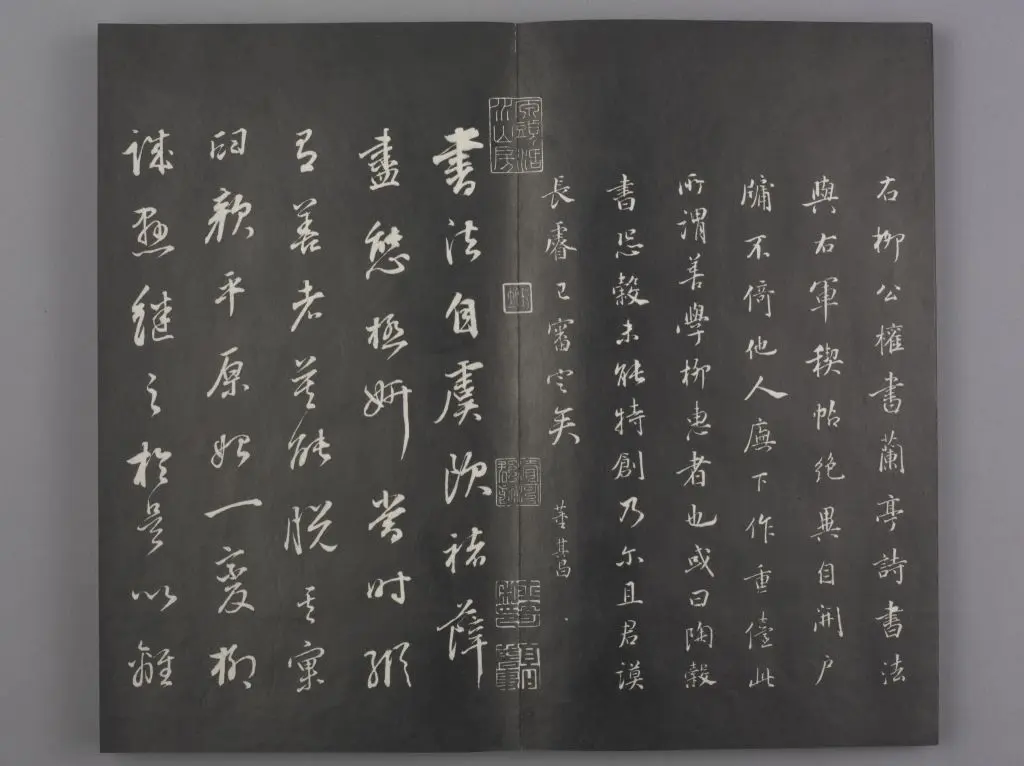 右柳公權書蘭亭詩書法
與右軍稧帖絶異自開户
牖不倚他人廡下作重儓此
所謂善學柳惠者也或曰陶榖
書思榖未能特創乃尔且君謨
長睿已審定矣 董其昌
書法自虞歐褚薛
盡態極妍當时縱
有善者莫能脱其窠
臼顔平原始一變柳
誠懸繼之於是以離